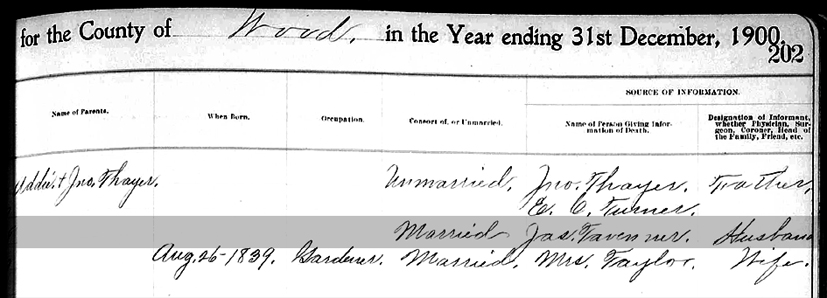 for the County of Wood, in the Year ending 31st December, 1900.
202
SOURCE OF INFORMATION.
Name of Parents.
When Born.
Occupation.
Consort of, or Unmarried.
Name of Person Giving Infor-
mation of Death.
Designation of Informant,
whether Physician, Sur-
geon, Coroner, Head of
the Family, Friend, etc.
& Jno. Thayer. Unmarried. Jno. Thayer. Father.
E. C. Turner.
Married Jas. Tavenner. Husband
Aug. 26-1839. Gardener. Married. Mrs. Taylor. Wife.